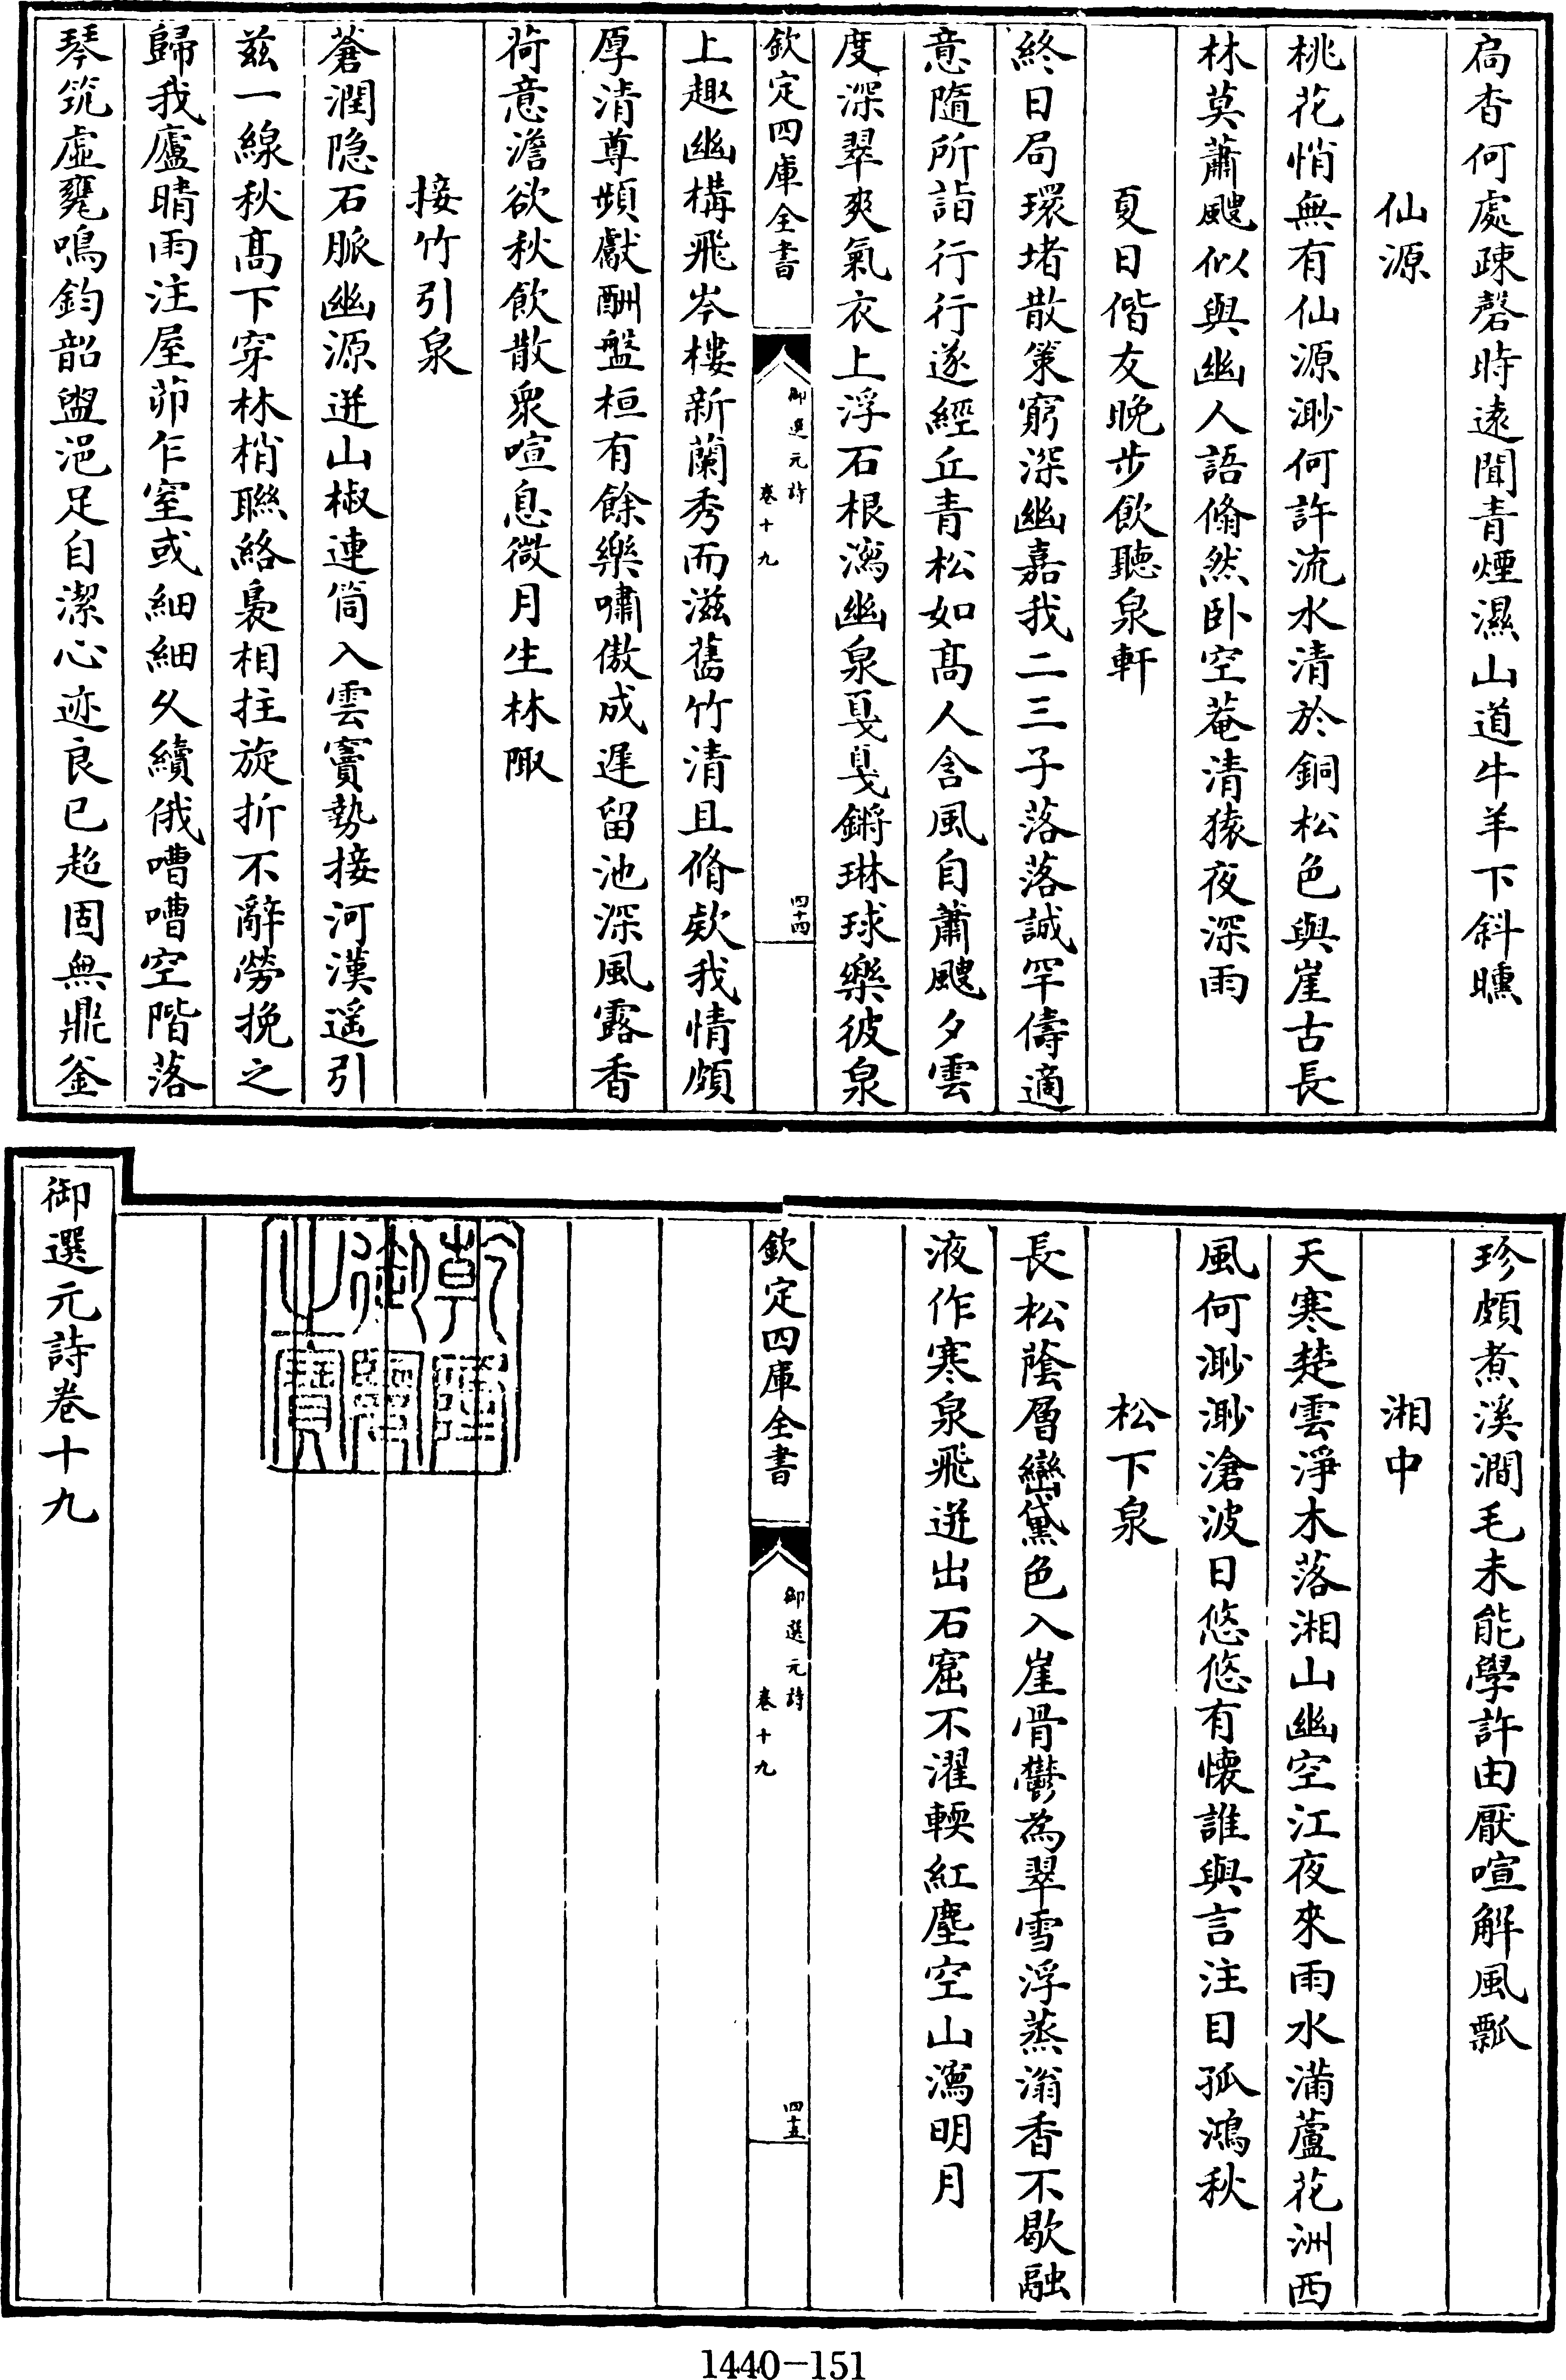 扃杳何處疎磬時遠聞青煙濕山道牛羊下斜曛
仙源
桃花悄無有仙源渺何許流水清於銅松色與崖古長
林莫蕭颼似與幽人語翛然卧空菴清猿夜深雨
夏日偕友晚步飲聽泉軒
終日局環堵散策窮深幽嘉我二三子落落誠罕儔適
意隨所詣行行遂經丘青松如髙人含風自蕭颼夕雲
度深翠爽氣衣上浮石根瀉幽泉戛戛鏘琳球樂彼泉
欽定四庫全書
御選元詩
卷十九
四十四
上趣幽構飛岑樓新蘭秀而滋舊竹清且脩欵我情頗
厚清尊頻獻酬盤桓有餘樂嘯傲成遲留池深風露香
荷意澹欲秋飲散衆喧息微月生林陬
接竹引泉
蒼潤隐石脈幽源迸山椒連筒入雲竇勢接河漢遥引
兹一線秋髙下穿林梢聯絡裊相拄旋折不辭勞挽之
歸我廬晴雨注屋茆乍窒或細細久續俄嘈嘈空階落
琴筑虛甕鳴鈞韶盥浥足自潔心迹良已超固無鼎釡
珍頗煮溪澗毛未能學許由厭喧解風瓢
湘中
天寒楚雲淨木落湘山幽空江夜來雨水滿蘆花洲西
風何渺渺滄波日悠悠有懐誰與言注目孤鴻秋
松下泉
長松蔭層巒黛色入崖骨鬱為翠雪浮蒸滃香不歇融
液作寒泉飛迸出石窟不濯輭紅塵空山瀉明月
欽定四庫全書
御選元詩
卷十九
四十五
乾隆御覽之寶
御選元詩卷十九
1440-151